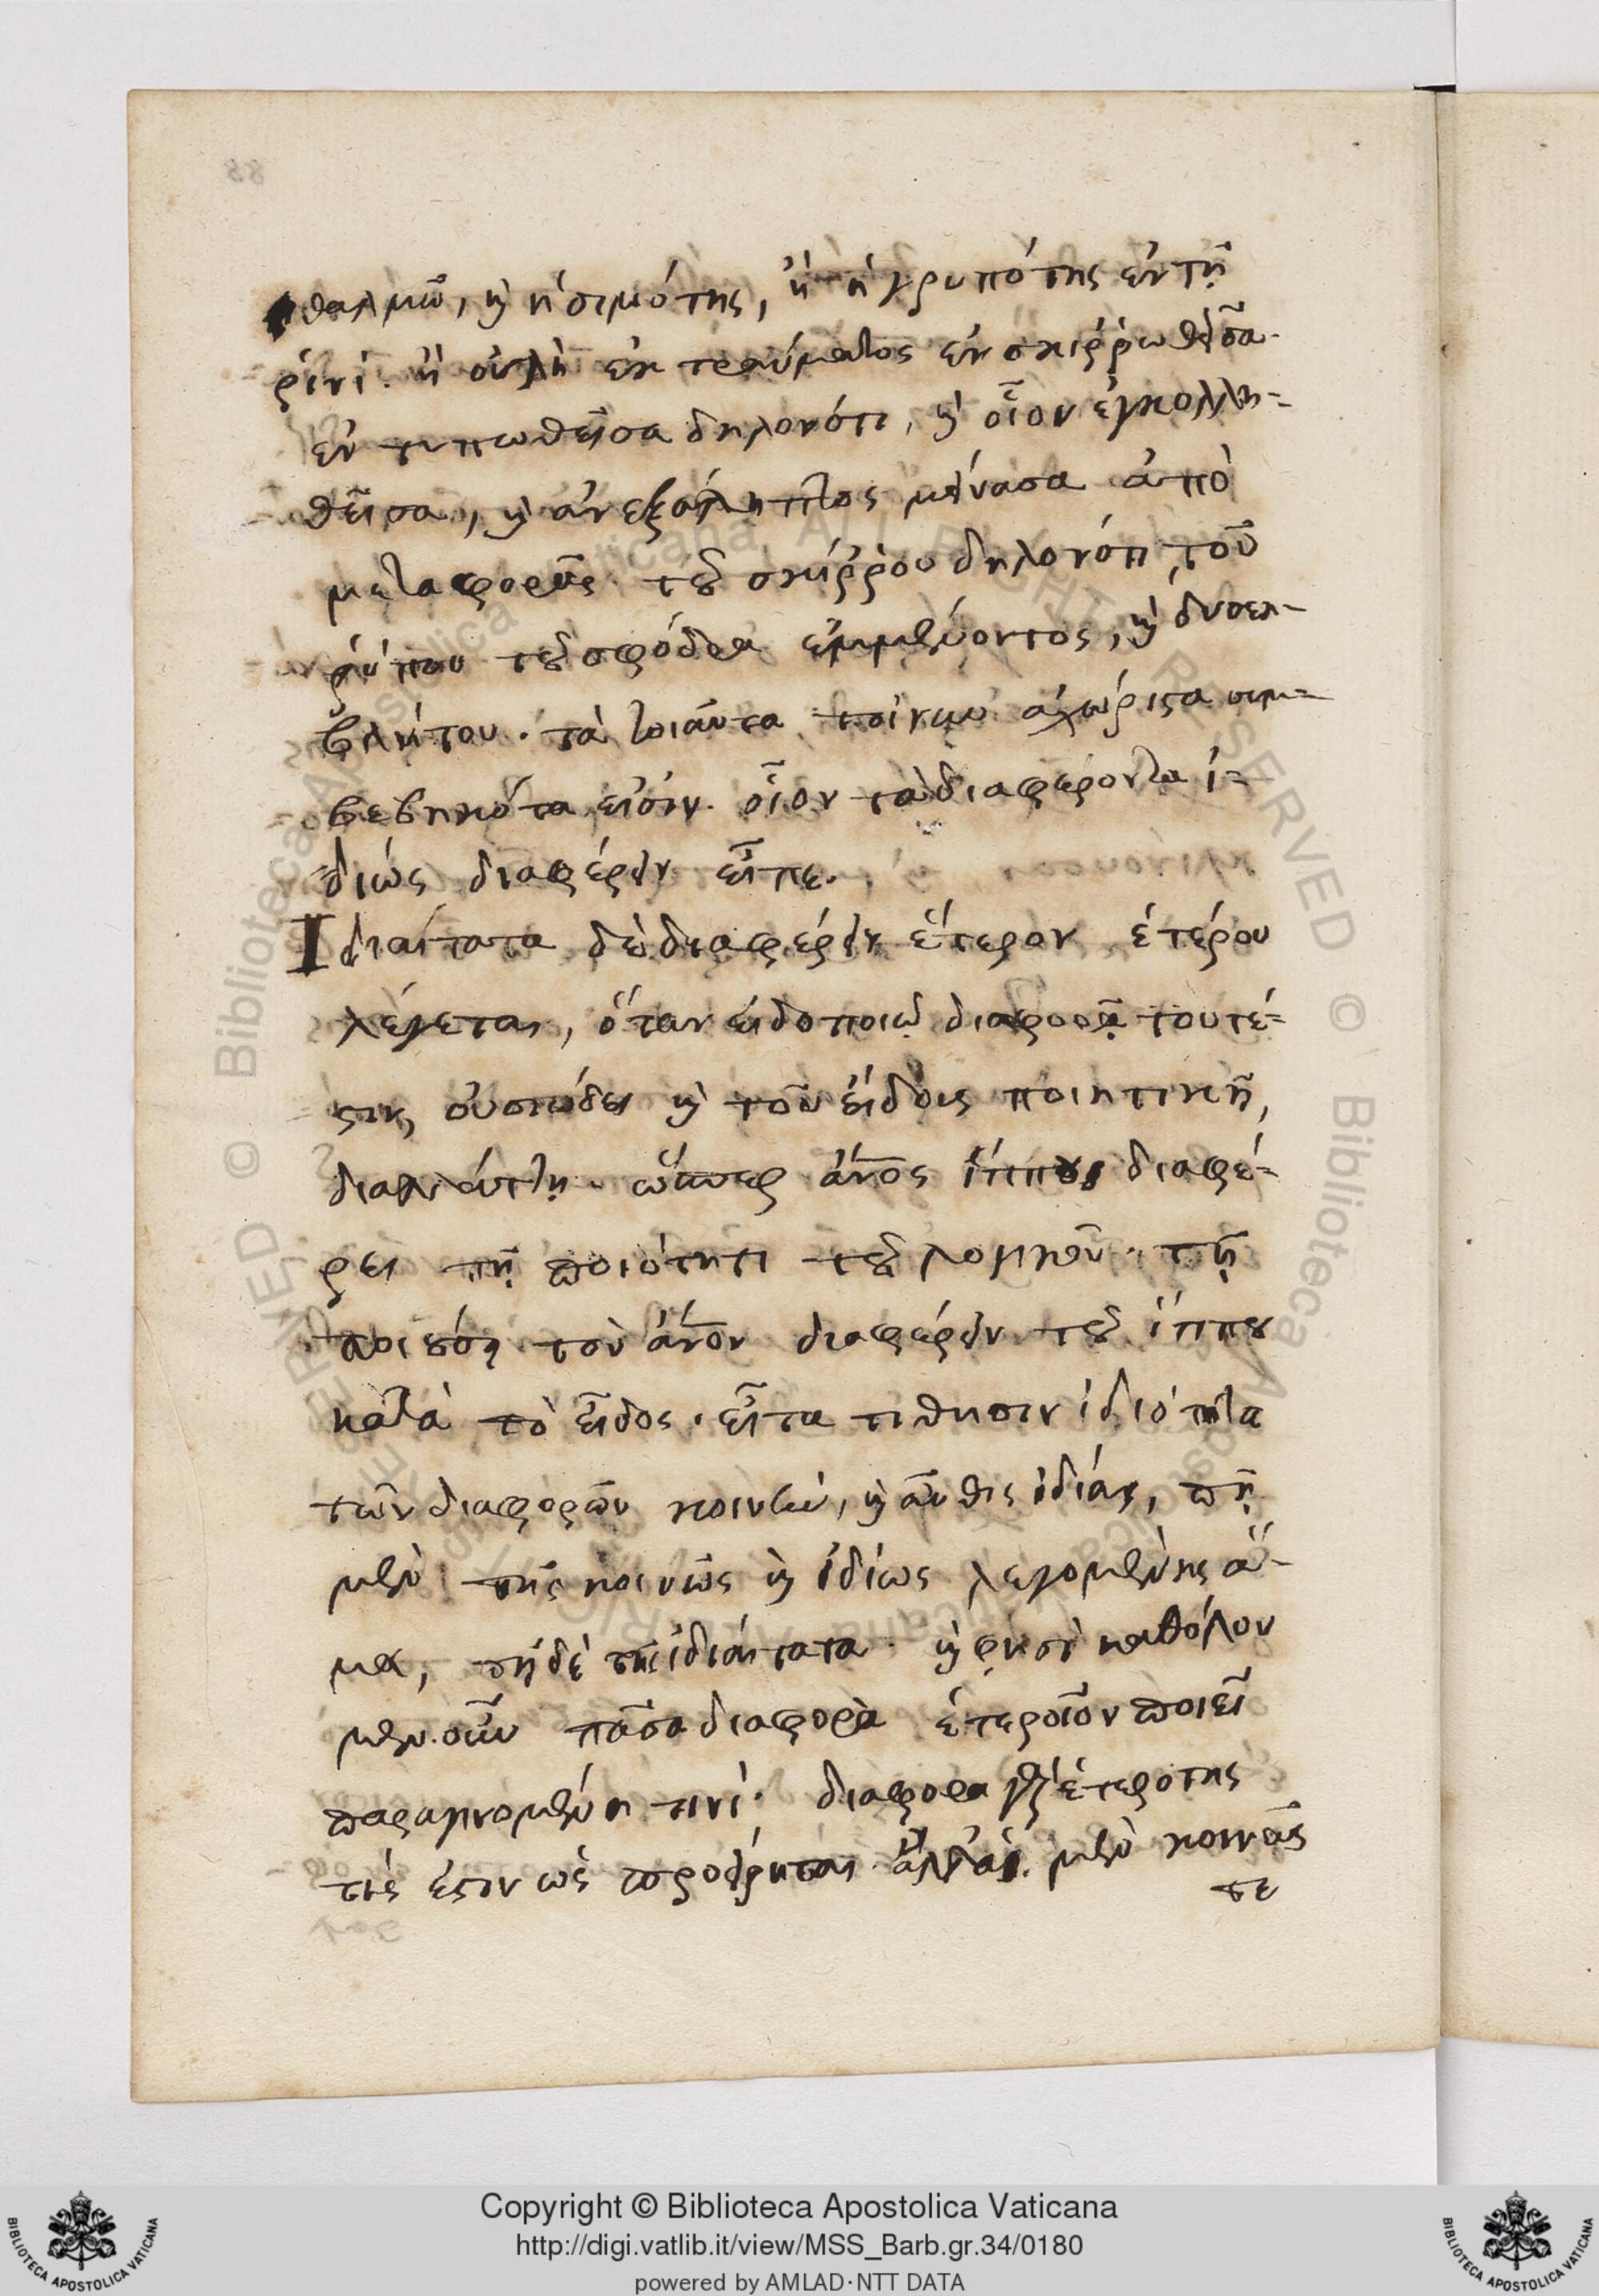 θαλμῶ, ϗ ἡ σιμότης, ἢ ἡ γρυπότης ἐν τῆ
ῥινί. ἢ οὐλὴ ἐκ τραύματος ἐνσκιῤῥωθεῖσα.
ἐντυπωθεῖσα δηλονότι, ϗ οἷον ἐγκολλη-
θεῖσα, ϗ ἀνεξάλειπτος μείνασα ἀπὸ
μεταφορᾶς τοῦ σκίῤῥου δηλονότι, τοῦ
ῥύπου τοῦ σφόδρα ἐμμένοντος, ϗ δυσεκ-
βλήτου. τὰ τοιαῦτα τοίνυν ἀχώριστα συμ-
βεβηκότα εἰσίν. οἷον τὰ διαφέροντα ἰ-
δίως διαφέρειν εἶπε.
Ἰδιαίτατα δὲ διαφέρειν ἕτερον ἑτέρου
λέγεται, ὅταν εἰδοποιῷ διαφορᾷ τουτέ-
στιν, οὐσιώδει ϗ τοῦ εἴδους ποιητικῇ,
διαλλάττῃ. ὥσπερ ἄνος ἵππου διαφέ-
ρει τῇ ποιότητι τοῦ λογικοῦ. τῇ
ποιεῖ τὸν ἄνον διαφέρειν τοῦ ἵππου
κατὰ τὸ εἶδος. εἶτα τίθησιν ἰδιότητα
τῶν διαφορῶν κοινὴν, ϗ αὖθις ἰδίας, πῆ
μὲν τῆς κοινῶς ϗ ἰδίως λεγομένης ἅ-
μα, πῆ δὲ τῆς ἰδιαίτατα. ϗ φησὶ καθόλου
μὲν οὖν πᾶσα διαφορὰ ἑτεροῖον ποιεῖ
παραγινομένη τινί. διαφορα γὰρ ἑτερότης
τίς ἐστιν ὡς προείρηται. ἀλλ' αἱ μὲν κοινῶς
τε